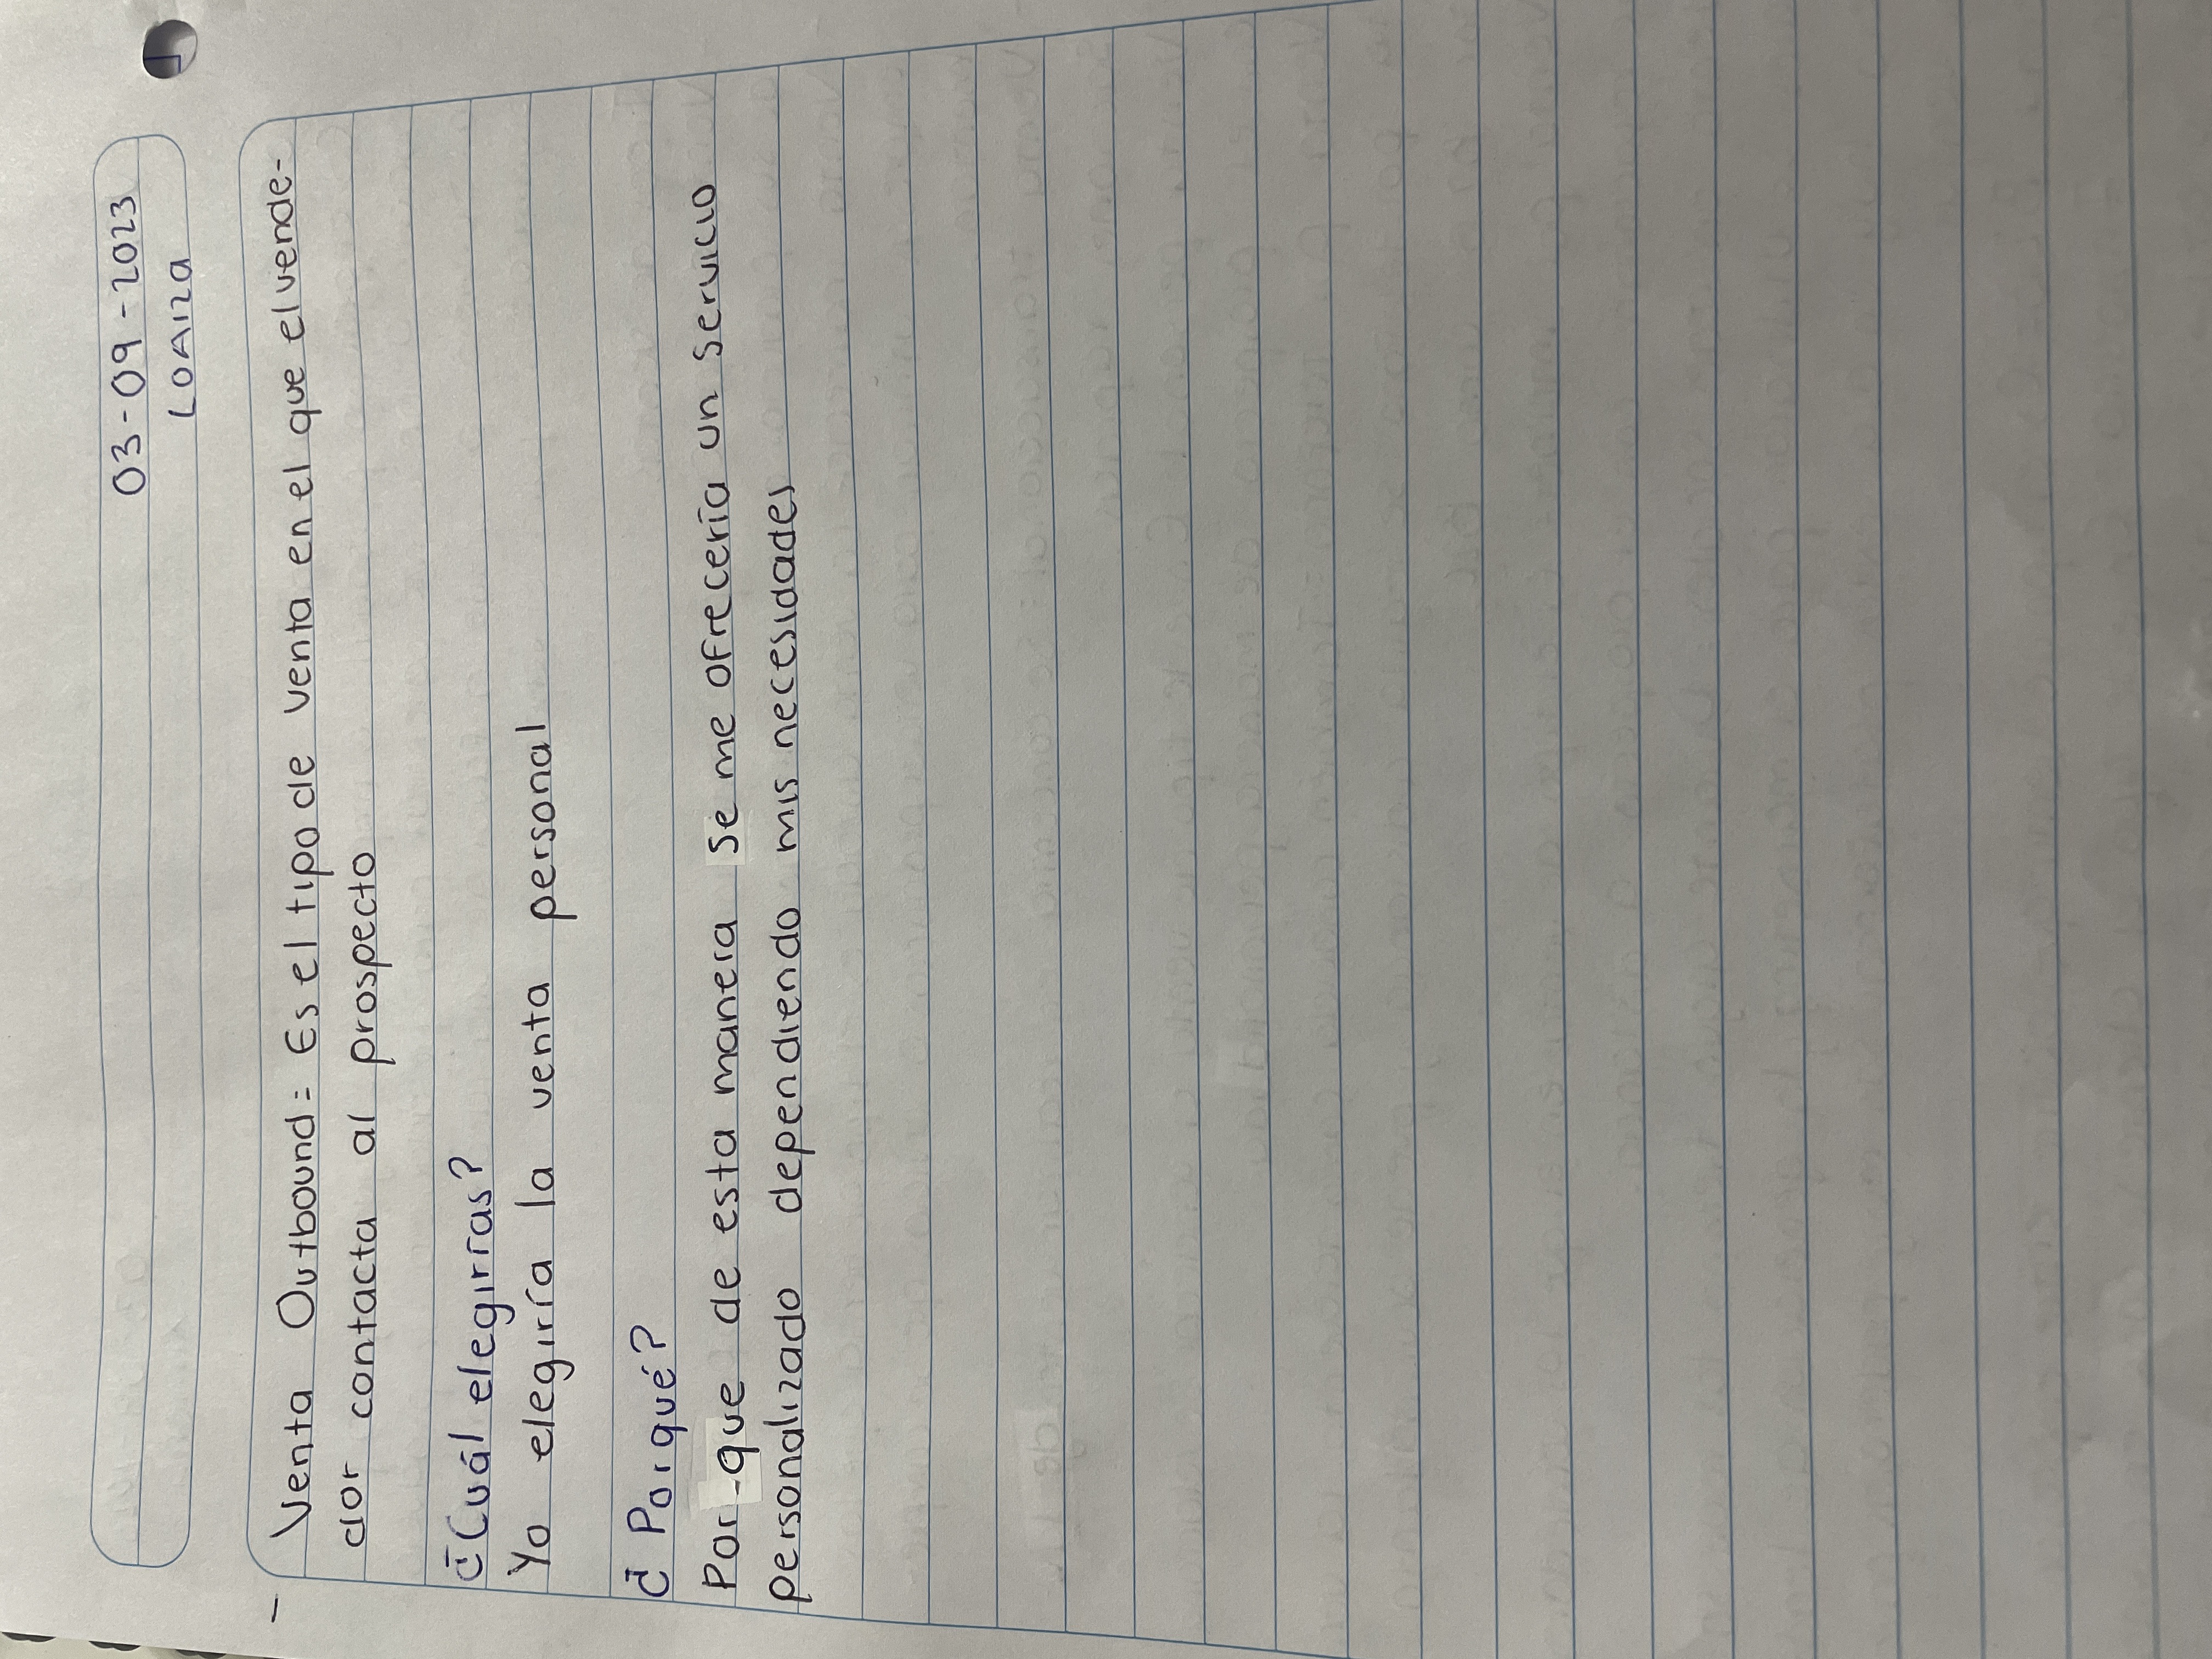 03-09-2023
LOAIZA
- Venta Outbound = Es el tipo de venta en el que el vende-
dor contacta al prospecto
¿Cuál elegirías?
Yo elegiría la venta personal
¿Por qué?
Por que de esta manera se me ofrecería un servicio
personalizado dependiendo mis necesidades